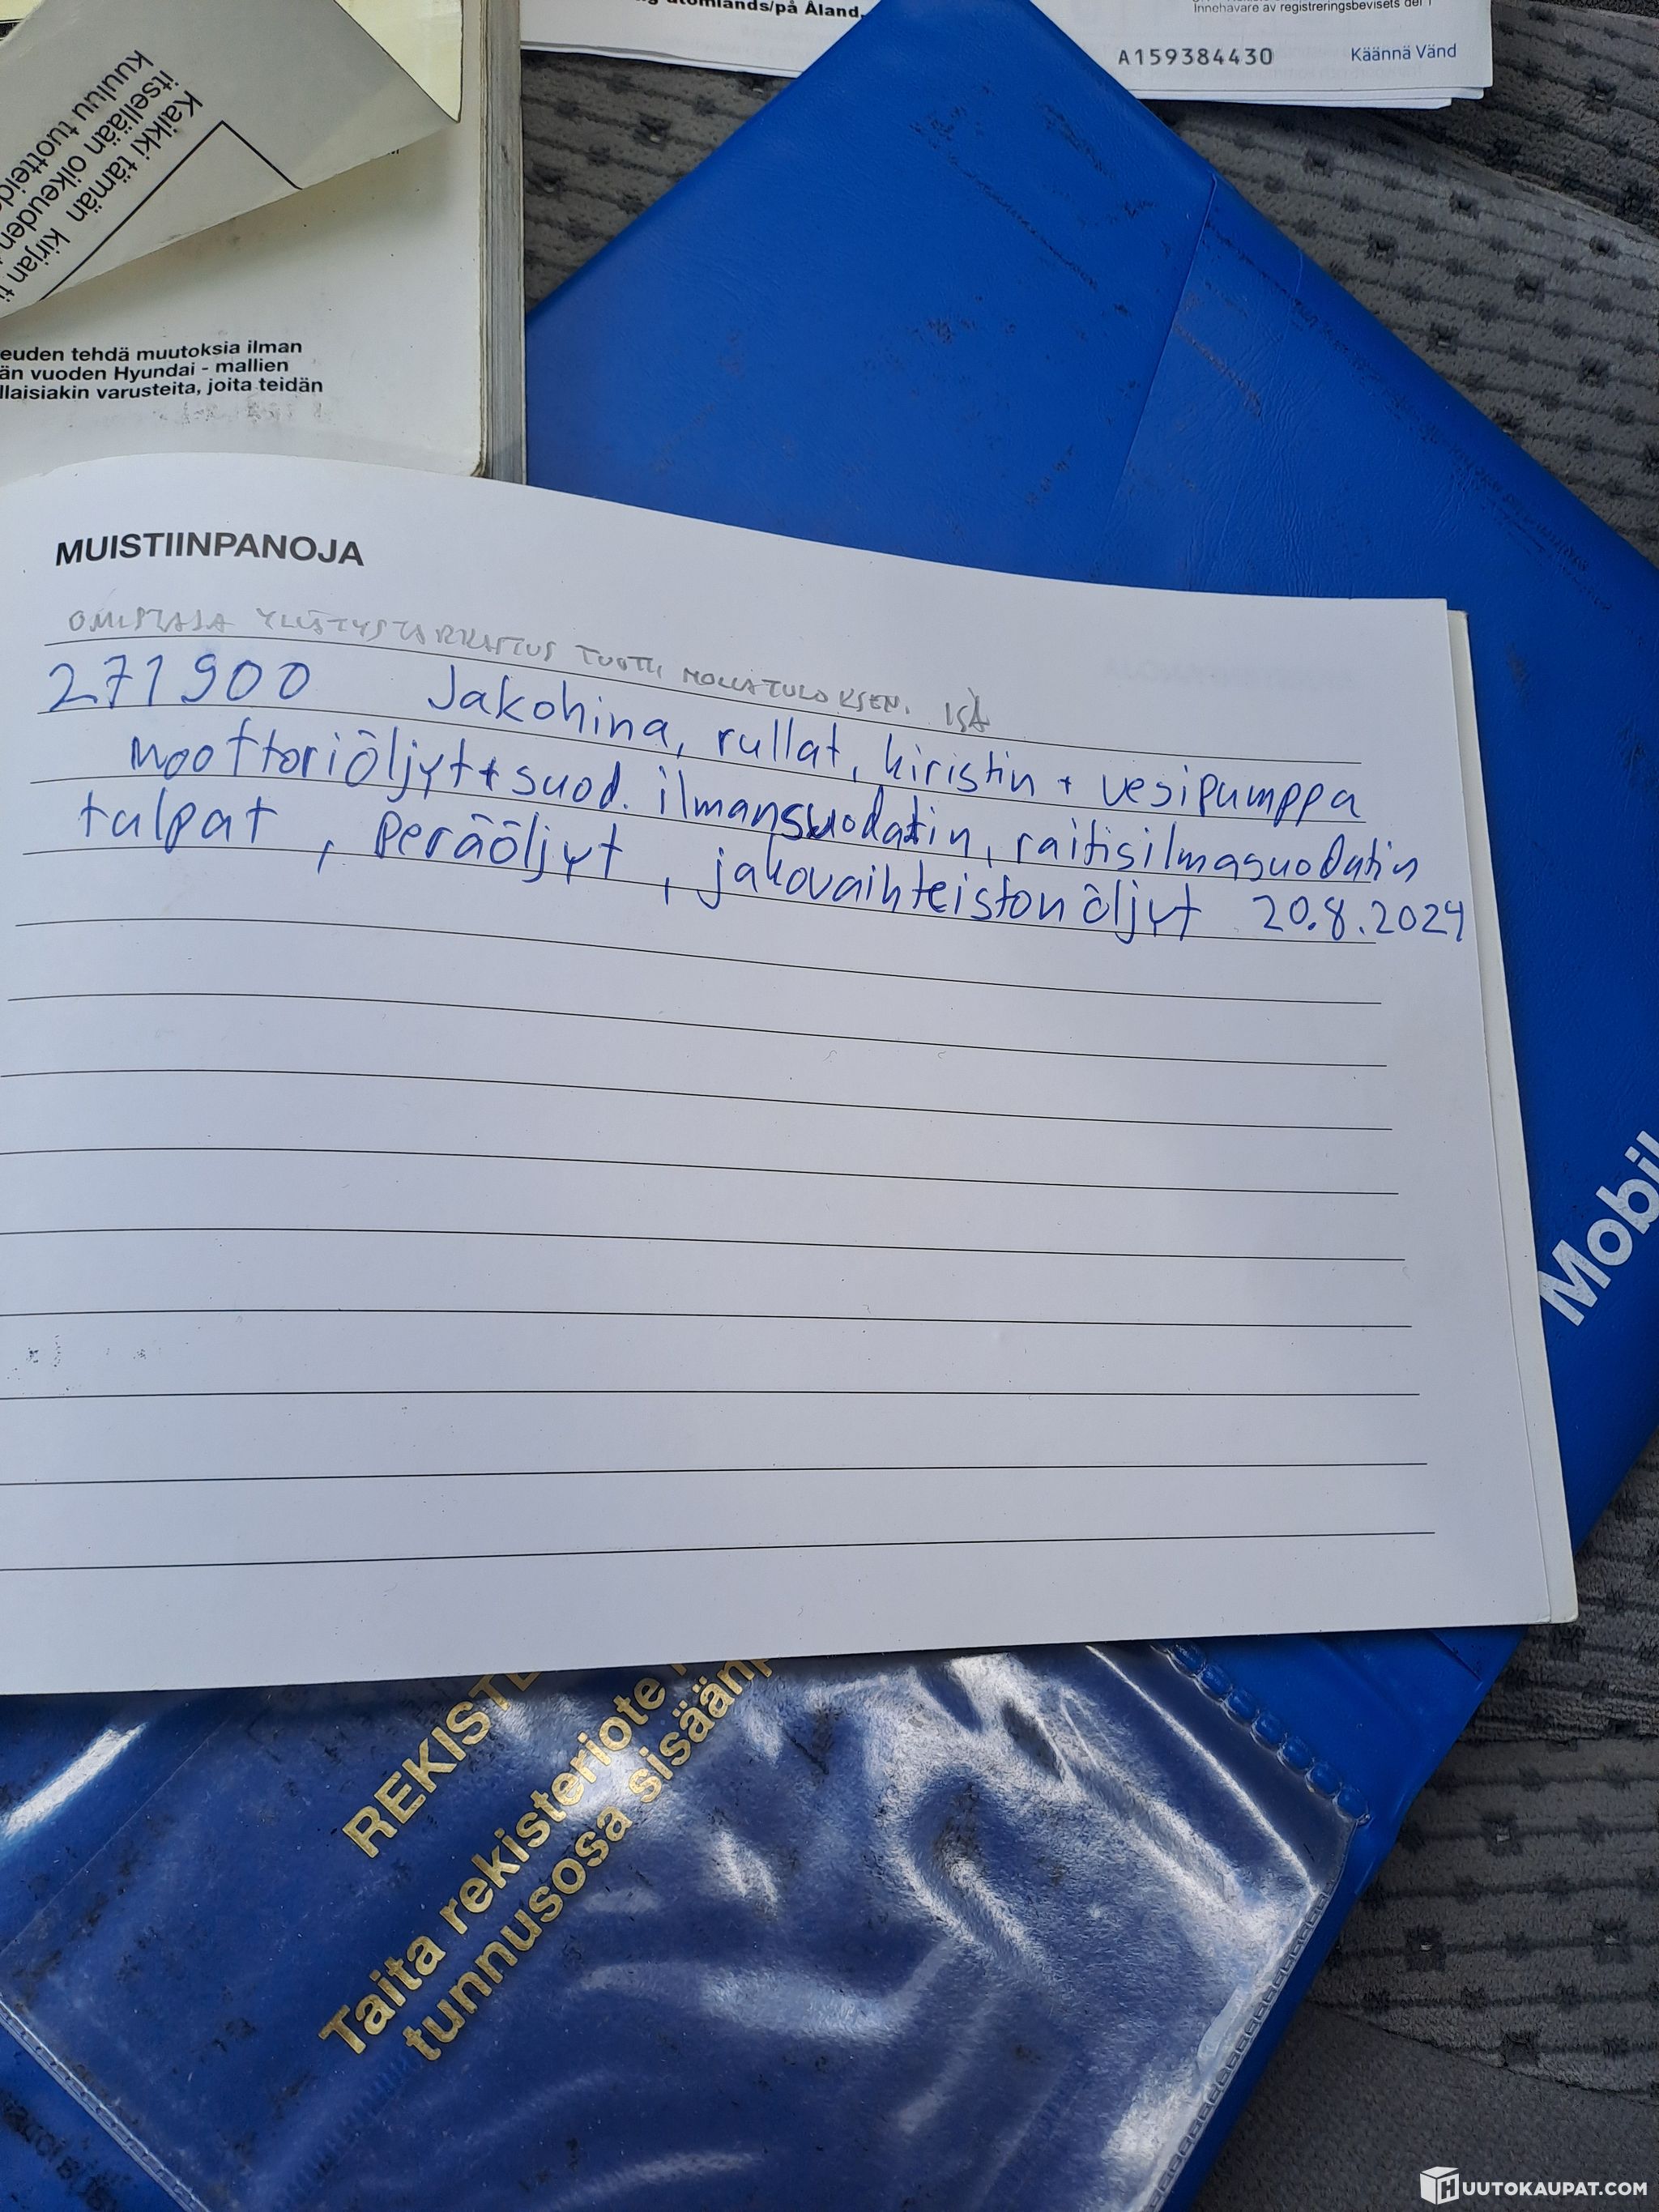 utomlands/på Åland.
Innehavare av registreringsbevisets del I
A159384430 Käännä Vänd
Kaikki tämän kirjan
itsellään oikeuden
kuuluu
euden tehdä muutoksia ilman
än vuoden Hyundai - mallien
llaisiakin varusteita, joita teidän
MUISTIINPANOJA
OMISTAJA YLLÄTYSTARKASTUS TUOTTI NOLLATULOKSEN. ISÄ
271900 Jakohina, rullat, kiristin + vesipumppa
moottoriöljyt + suod. ilmansuodatin, raitisilmasuodatin
tulpat, peräöljyt, jakovaihteistonöljyt 20.8.2024
Mobil
REKISTE
Taita rekisteriote
tunnusosa sisäänp
HUUTOKAUPAT.COM